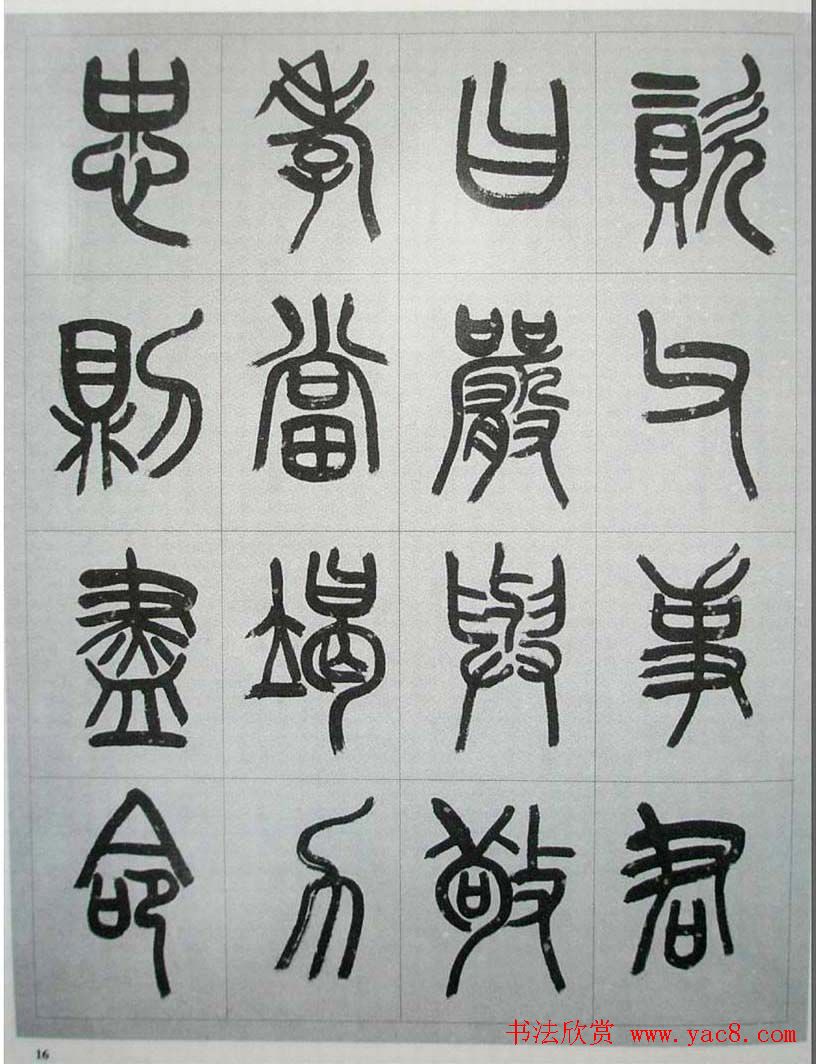 資父事君
曰嚴與敬
孝當竭力
忠則盡命
书法欣赏 www.yac8.com
16